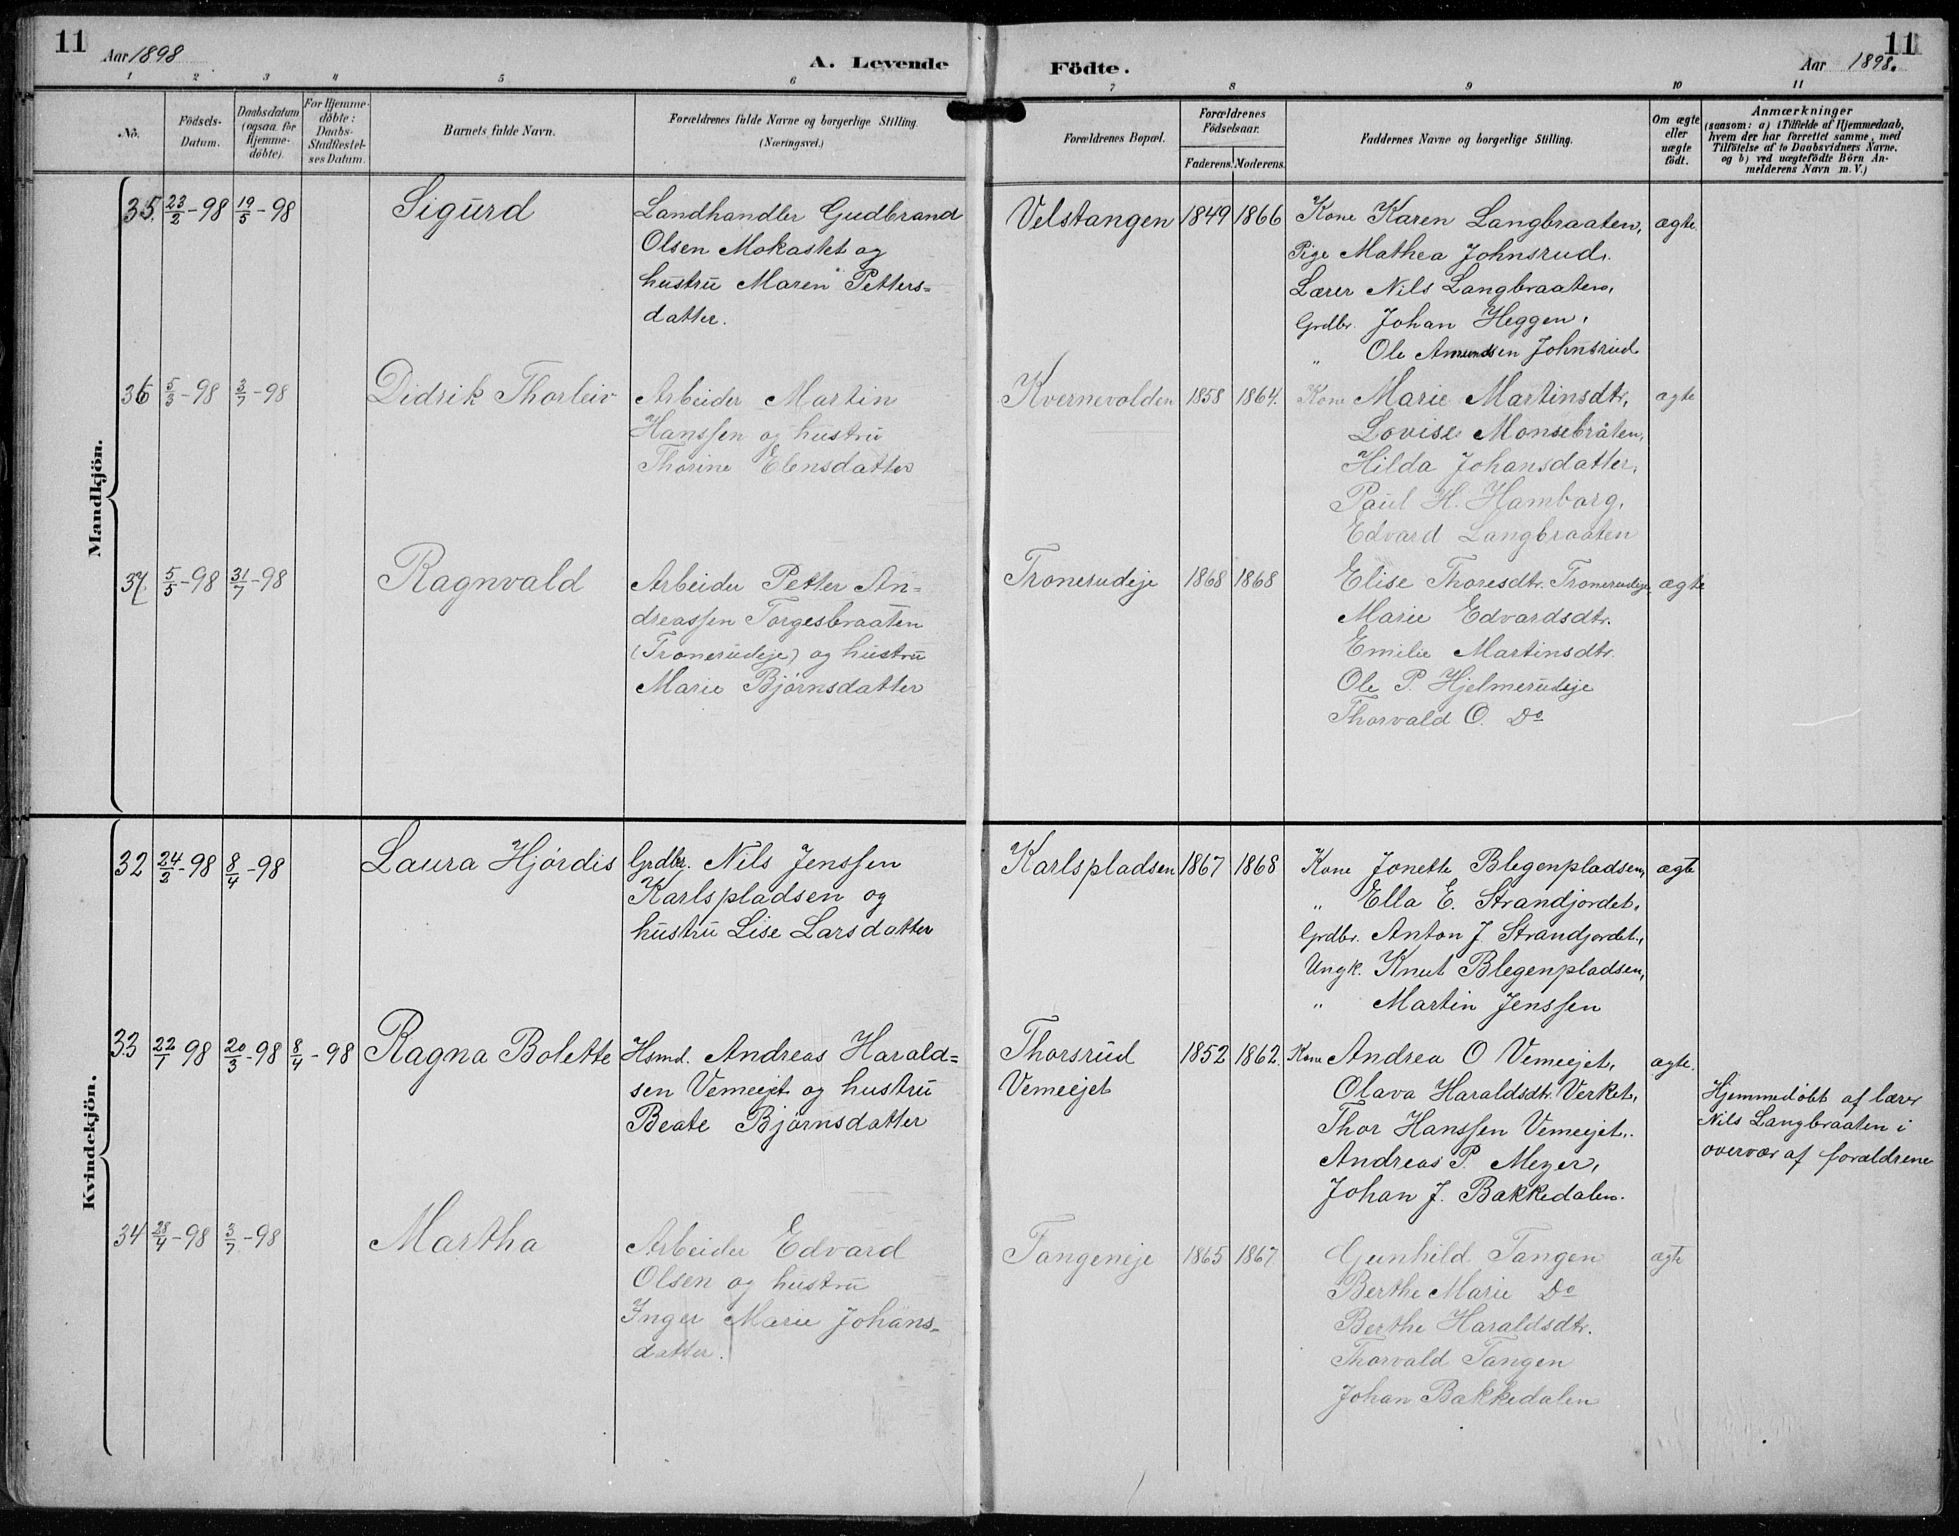 11
Aar 1898
A. Levende
Födte.
Aar 1898.
11
1 2 3 4 5 6 7 8 9 10 11
No.
Födsels-
Datum.
Daabsdatum
(ogsaa for
Hjemme-
döbte).
For Hjemme-
döbte:
Daabs-
Stadfæstel-
ses Datum.
Barnets fulde Navn.
Forældrenes fulde Navne og borgerlige Stilling.
(Næringsvei.)
Forældrenes Bopæl.
Forældrenes
Födselsaar.
Faderens. Moderens.
Faddernes Navne og borgerlige Stilling.
Om ægte
eller
uægte
födt.
Anmærkninger
(saasom: a) i Tilfælde af Hjemmedaab,
hvem der har forrettet samme, med
Tilföielse af to Daabsvidners Navne.
og b) ved uægtefödte Börn An-
melderens Navn m. V.)
Mandkjön.
35. 23/2-98 19/5-98
Sigurd
Landhandler Gudbrand
Olsen Mokastet og
hustru Maren Petters=
datter.
Velstangen
1849 1866
Kone Karen Langbraaten,
Pige Mathea Johnsrud.
Lærer Nils Langbraaten,
Grdbr. Johan Heggen,
" Ole Amundsen Johnsrud
ægte.
36 5/3-98 3/7-98
Didrik Thorleiv
Arbeider Martin
Hanssen og hustru
Thorine Elensdatter
Kvernevolden
1858 1864.
Kone Marie Martinsdtr,
Lovise Monsebråten,
Hilda Johansdatter,
Paul H. Hamborg,
Edvard Langbraaten
ægte
37 5/5-98 31/7-98
Ragnvald
Arbeider Petter An=
dreassen Torgesbraaten
(Tronerudeje) og hustru
Marie Bjørnsdatter
Tronerudeje
1868 1868
Elise Thoresdtr. Tronerudeje
Marie Edvardsdtr.
Emilie Martinsdtr.
Ole P. Hjelmerudeje
Thorvald O. Do
ægte
Kvindekjön.
32 24/2-98 8/4-98
Laura Hjørdis
Grdbr. Nils Jenssen
Karlspladsen og
hustru Lise Larsdatter
Karlspladsen
1867 1868
Kone Jonette Blegenpladsen,
" Ella E. Strandjordet,
Grdbr. Anton J. Strandjordet,
Ungk. Knut Blegenpladsen,
" Martin Jenssen
ægte
33 22/1 98 20/3-98 8/4-98
Ragna Bolette
Hsmd. Andreas Harald=
sen Vemeejet og hustru
Beate Bjørnsdatter
Thorsrud
Vemeejet
1852 1862.
Kone Andrea O Vemeejet,
Olava Haraldsdtr. Verket,
Thor Hanssen Vemeejet,
Andreas P. Meyer,
Johan J. Bakkedalen.
ægte.
Hjemmedøbt af lærer
Nils Langbraaten i
overvær af forældrene
34 28/4-98 3/7-98
Martha
Arbeider Edvard
Olsen og hustru
Inger Marie Johans=
datter.
Tangeneje
1865 1867.
Gunhild Tangen
Berthe Marie Do
Berthe Haraldsdtr.
Thorvald Tangen
Johan Bakkedalen
ægte